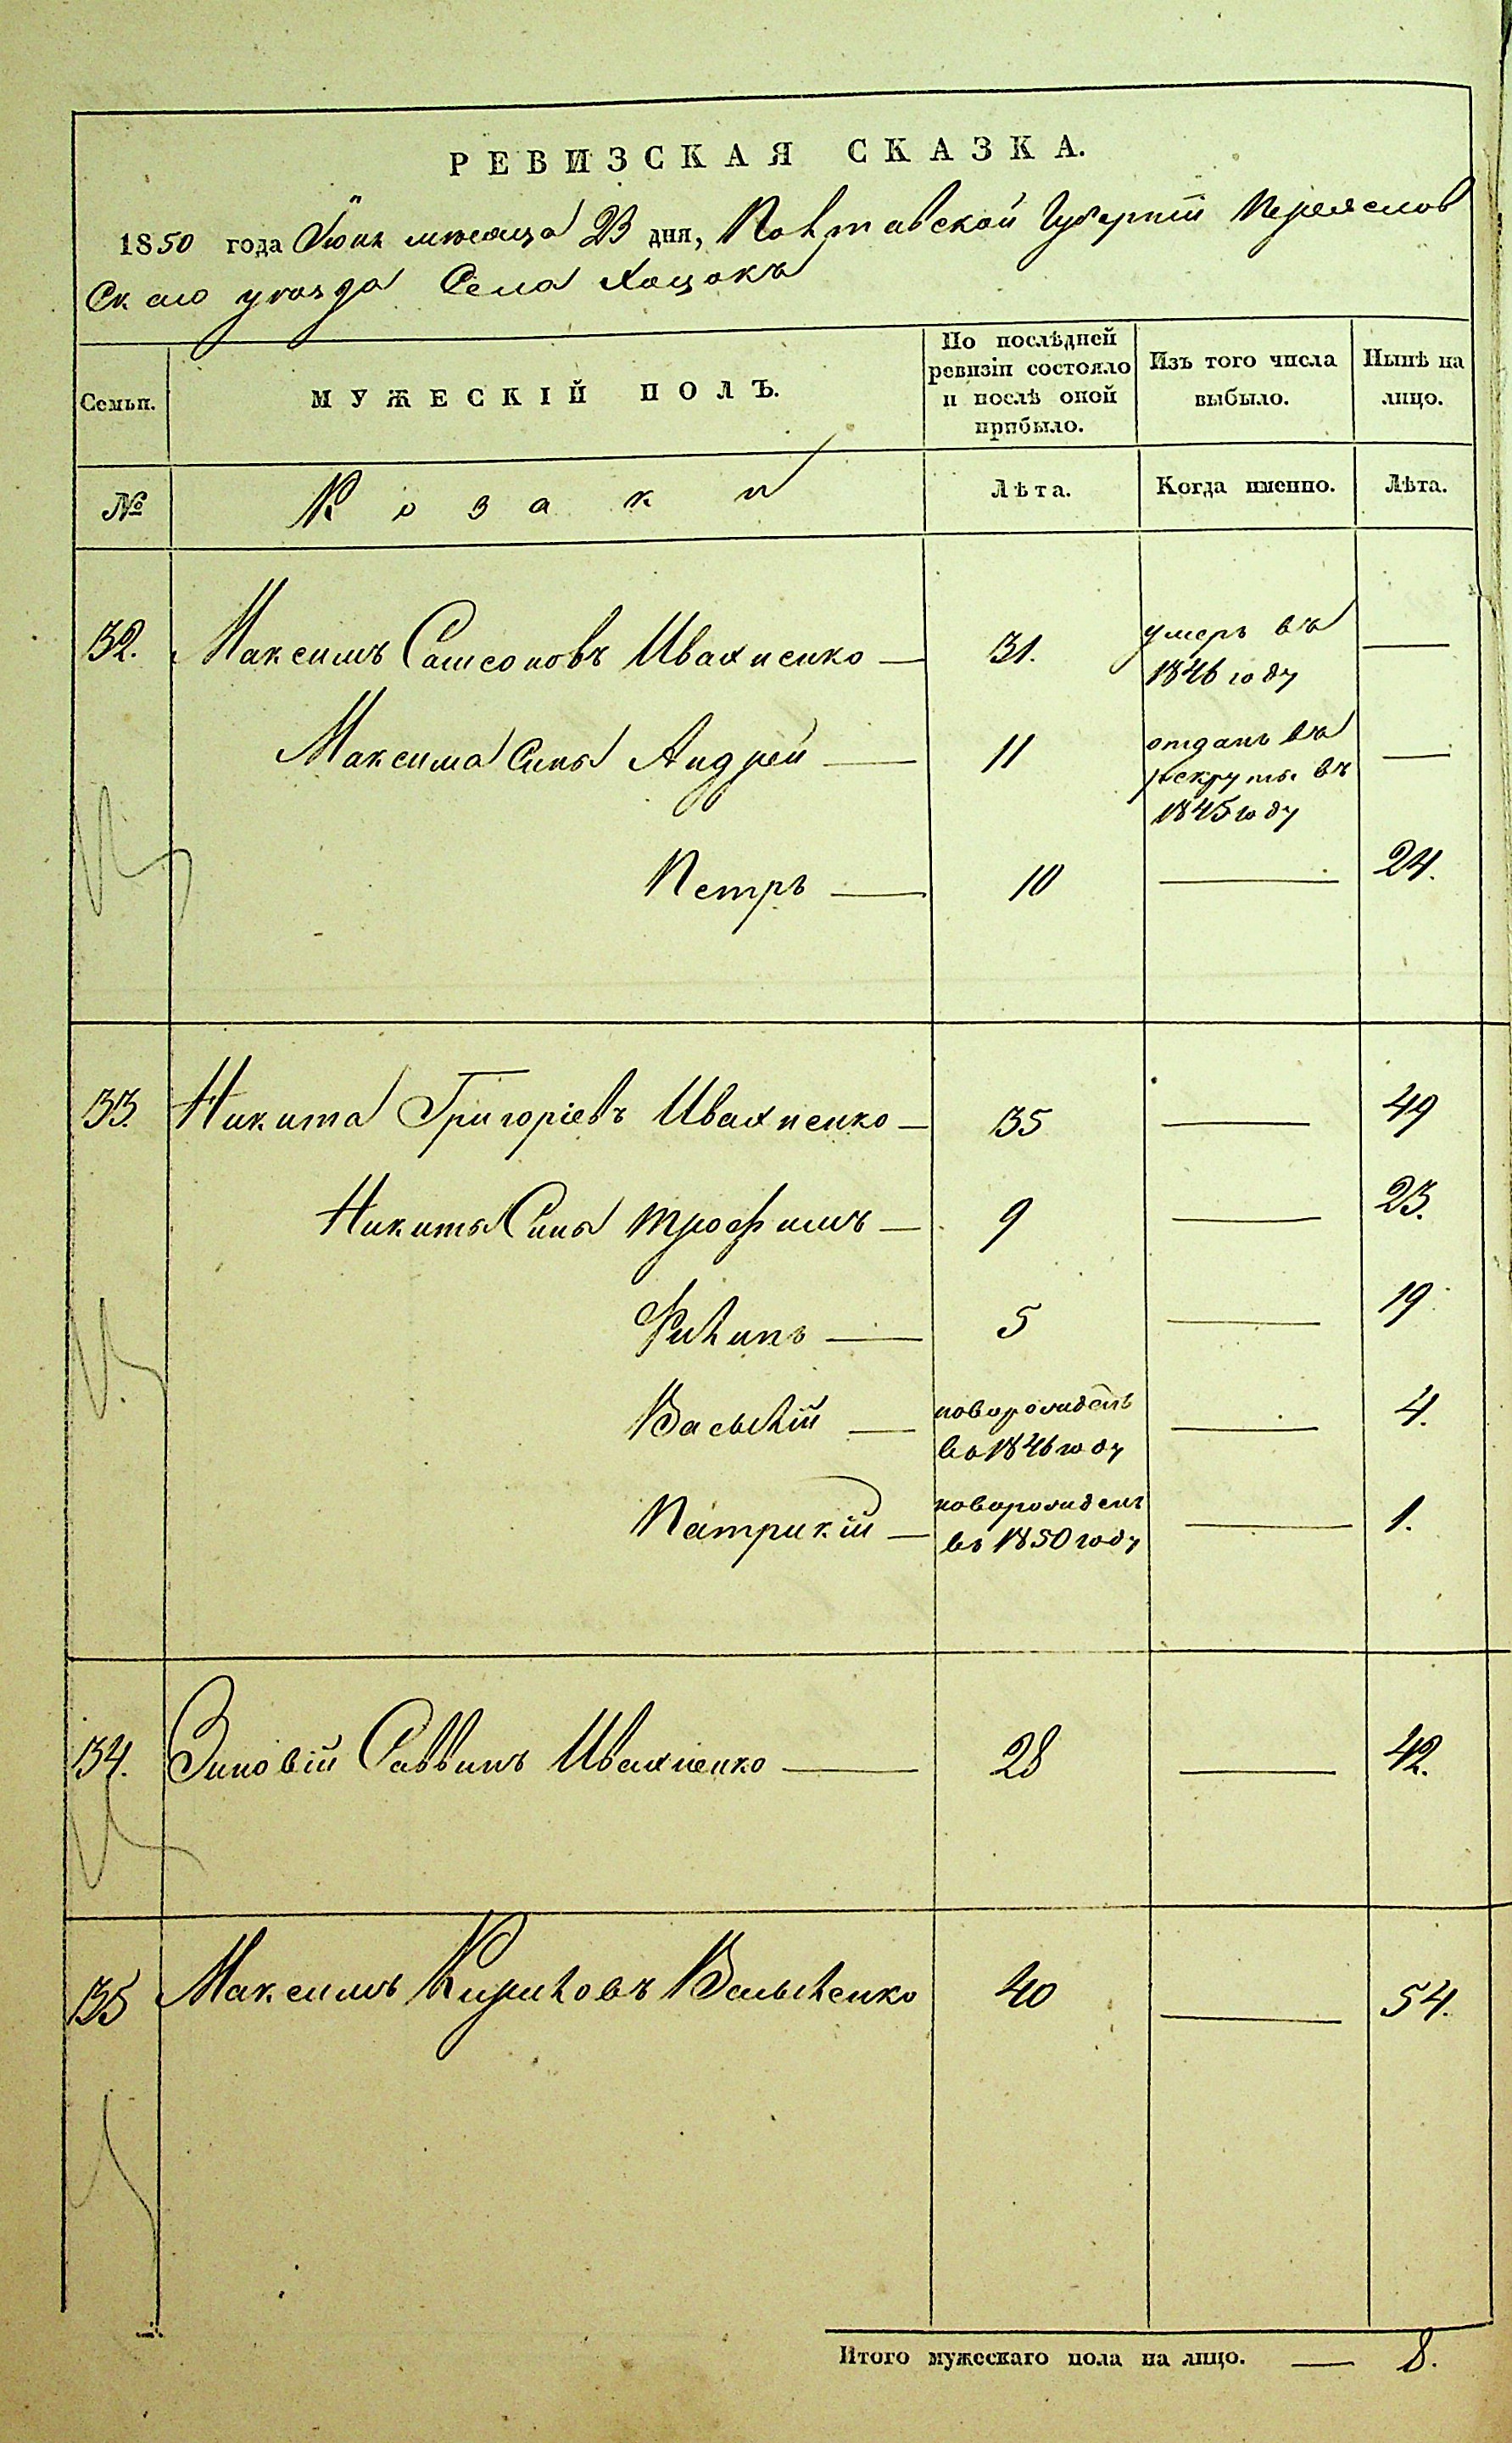 РЕВИЗСКАЯ СКАЗКА.
1850 года Іюня мѣсяца 23 дня, Полтавской Губерніи Переяслов
Скаго уѣзда Села Хоцокъ
Семьи.
МУЖЕСКІЙ ПОЛЪ.
По послѣдней
ревизіи состояло
и послѣ оной
прибыло.
Изъ того числа
выбыло.
Нынѣ на
лицо.
№
Козаки
Лѣта.
Когда именно.
Лѣта.
32. Максимъ Самсоновъ Ивахненко — 31. умеръ въ —
1846 году
Максима Сынъ Андрей — 11 отданъ въ —
рекруты въ
1845 году
Петръ — 10 — 24.
33. Никита Григоріевъ Ивахненко — 35 — 49
Никиты Сынъ Трофимъ — 9 — 23.
Филипъ — 5 — 19
Василій — новорожденъ — 4.
въ 1846 году
Патрикій — новорожденъ — 1.
въ 1850 году
34. Зиновій Саввинъ Ивахненко — 28 — 42.
35 Максимъ Кириловъ Васьленко 40 — 54.
Итого мужескаго пола на лицо. — 8.